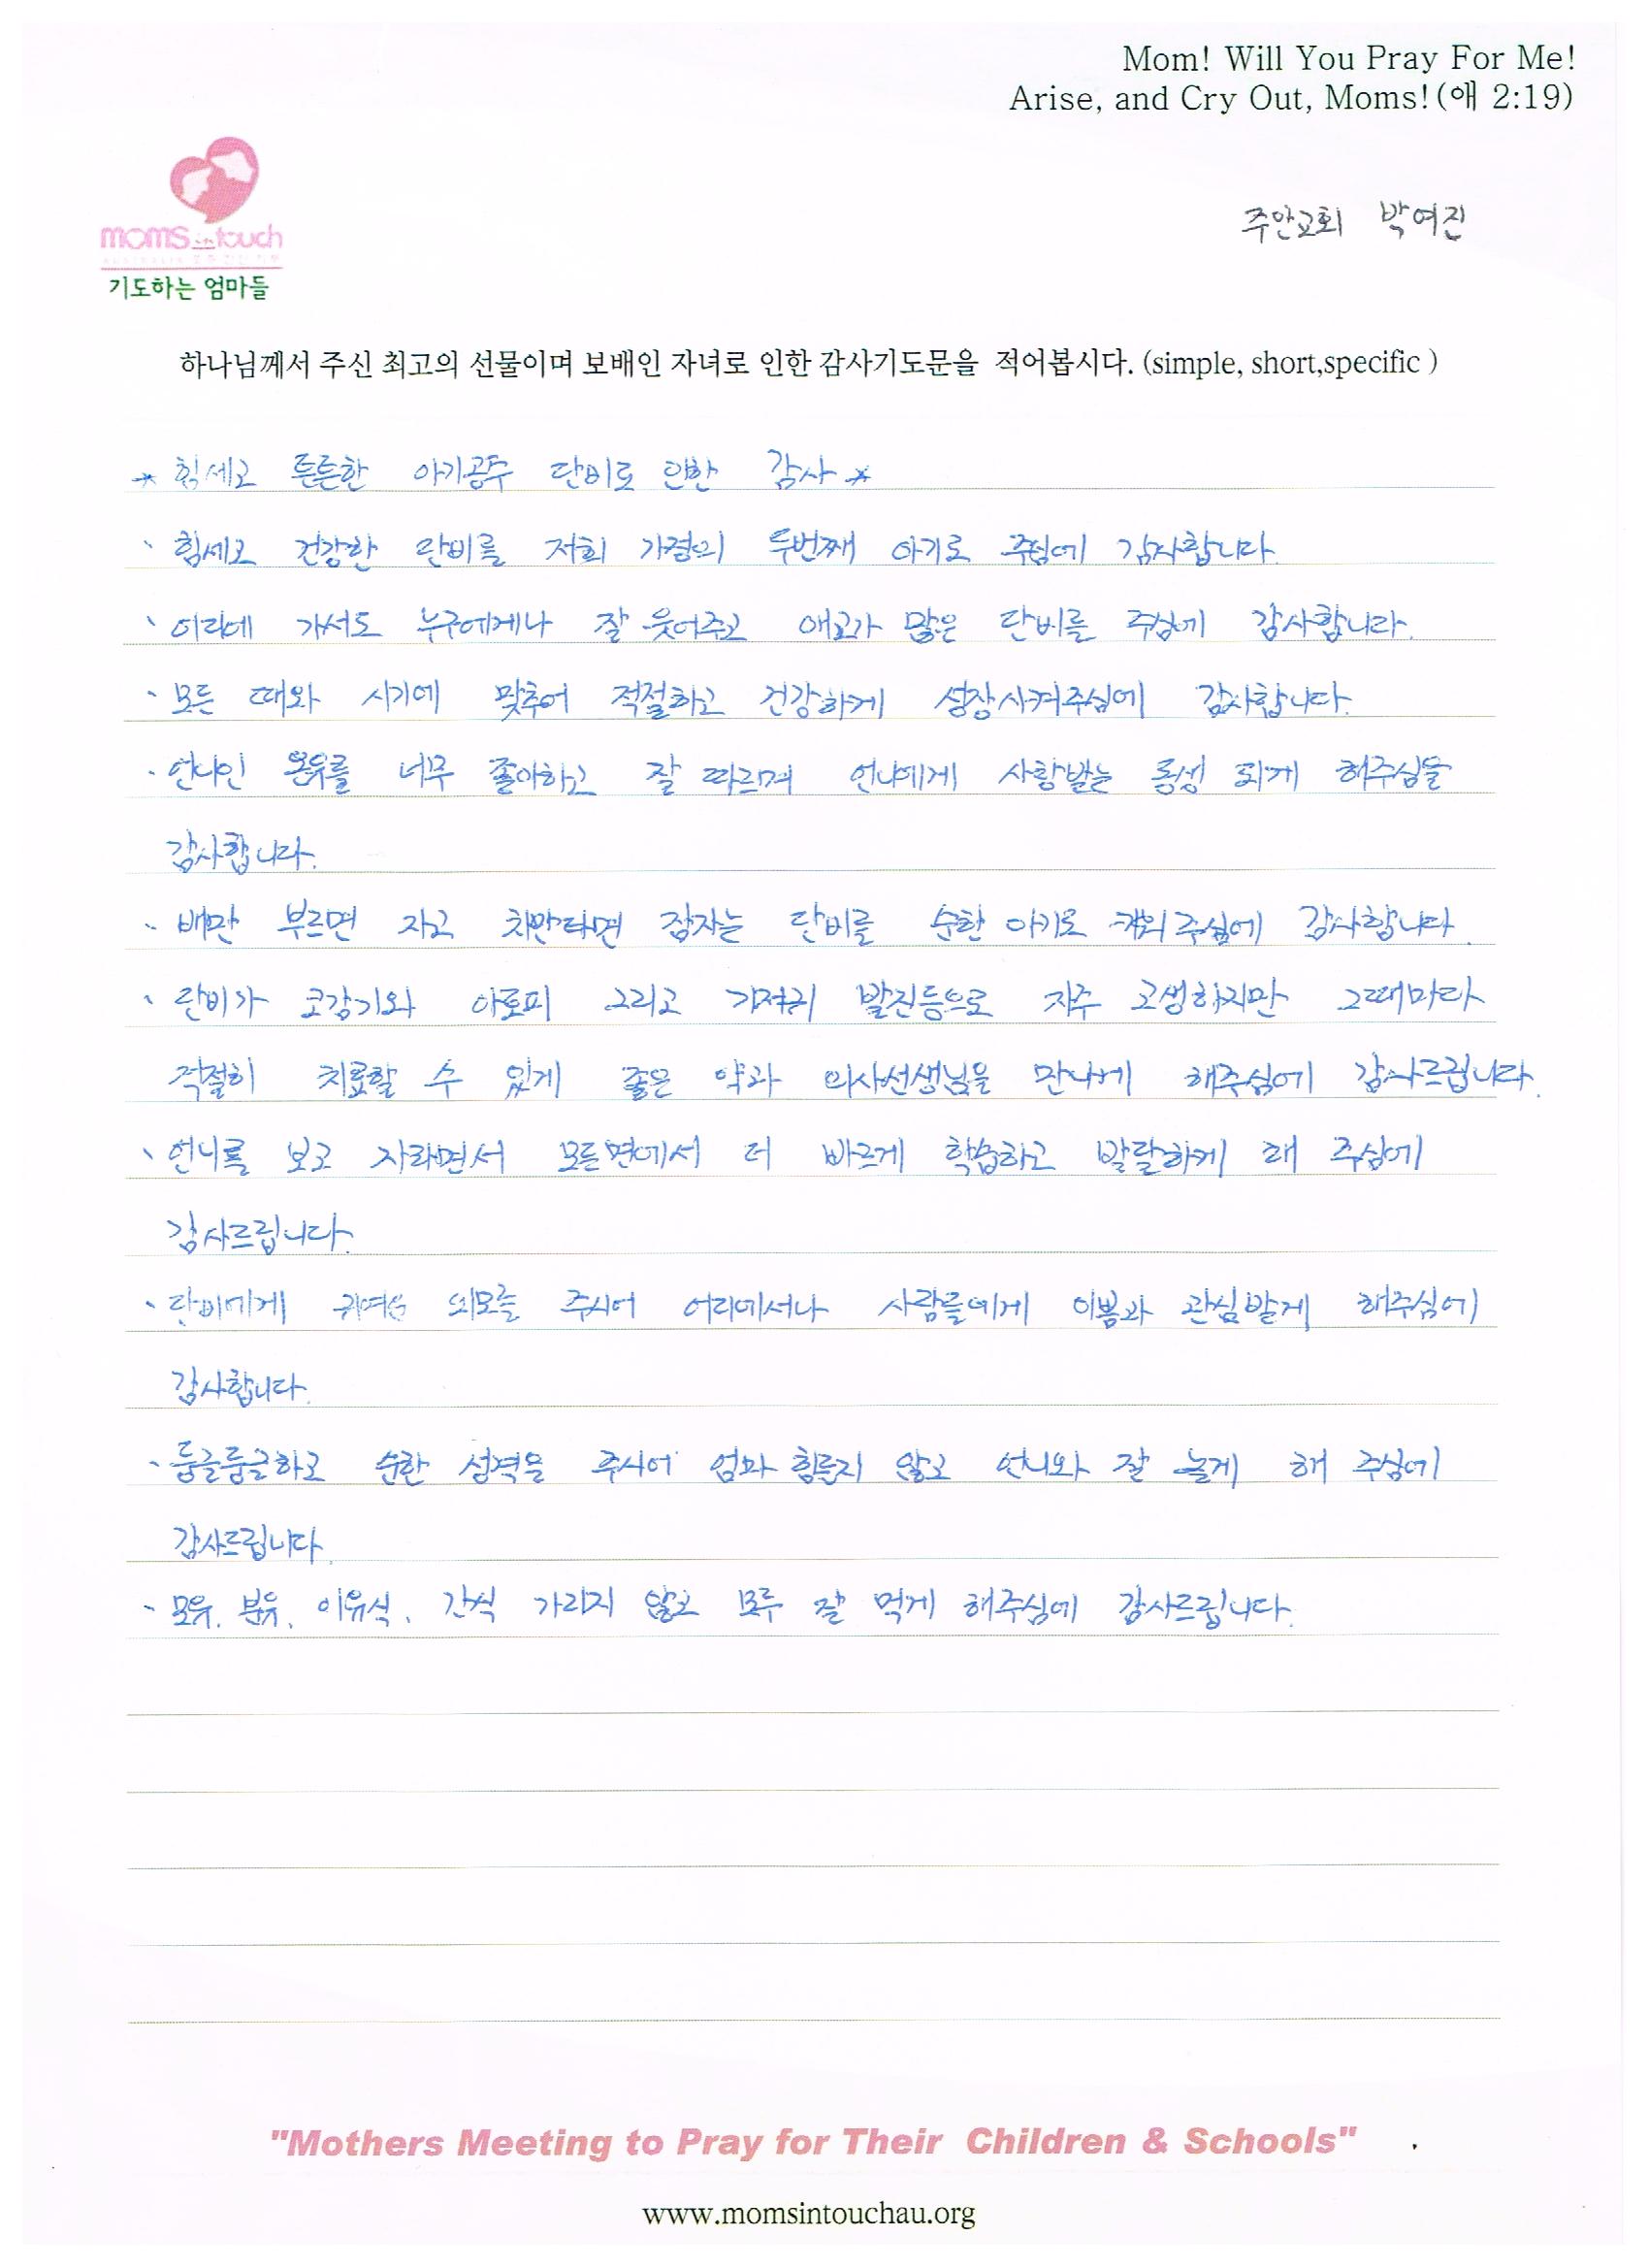 Mom! Will You Pray For Me!
Arise, and Cry Out, Moms!(애 2:19)
moms in touch
기도하는 엄마들
주안교회 박여진
하나님께서 주신 최고의 선물이며 보배인 자녀로 인한 감사기도문을 적어봅시다. (simple, short,specific )
* 힘세고 튼튼한 아기공주 단비로 인한 감사 *
· 힘세고 건강한 단비를 저희 가정의 두번째 아기로 주심에 감사합니다.
· 어디에 가서도 누구에게나 잘 웃어주고 애교가 많은 단비를 주심에 감사합니다.
· 모든 때와 시기에 맞추어 적절하고 건강하게 성장시켜주심에 감사합니다.
· 언니인 온유를 너무 좋아하고 잘 따르며 언니에게 사랑받는 동생 되게 해주심을
감사합니다.
· 배만 부르면 자고 치만타면 잠자는 단비를 순한 아기로 키워주심에 감사합니다.
· 단비가 코감기와 아토피 그리고 기저귀 발진등으로 자주 고생하지만 그때마다
적절히 치료할 수 있게 좋은 약과 의사선생님을 만나게 해주심에 감사드립니다.
· 언니를 보고 자라면서 모든면에서 더 빠르게 학습하고 발달하게 해 주심에
감사드립니다.
· 단비에게 귀여운 외모를 주시어 어디에서나 사람들에게 이쁨과 관심받게 해주심에
감사합니다.
· 둥글둥글하고 순한 성격을 주시어 엄마 힘들지 않고 언니와 잘 놀게 해 주심에
감사드립니다.
· 모유, 분유, 이유식, 간식 가리지 않고 모두 잘 먹게 해주심에 감사드립니다.
"Mothers Meeting to Pray for Their Children & Schools"
www.momsintouchau.org